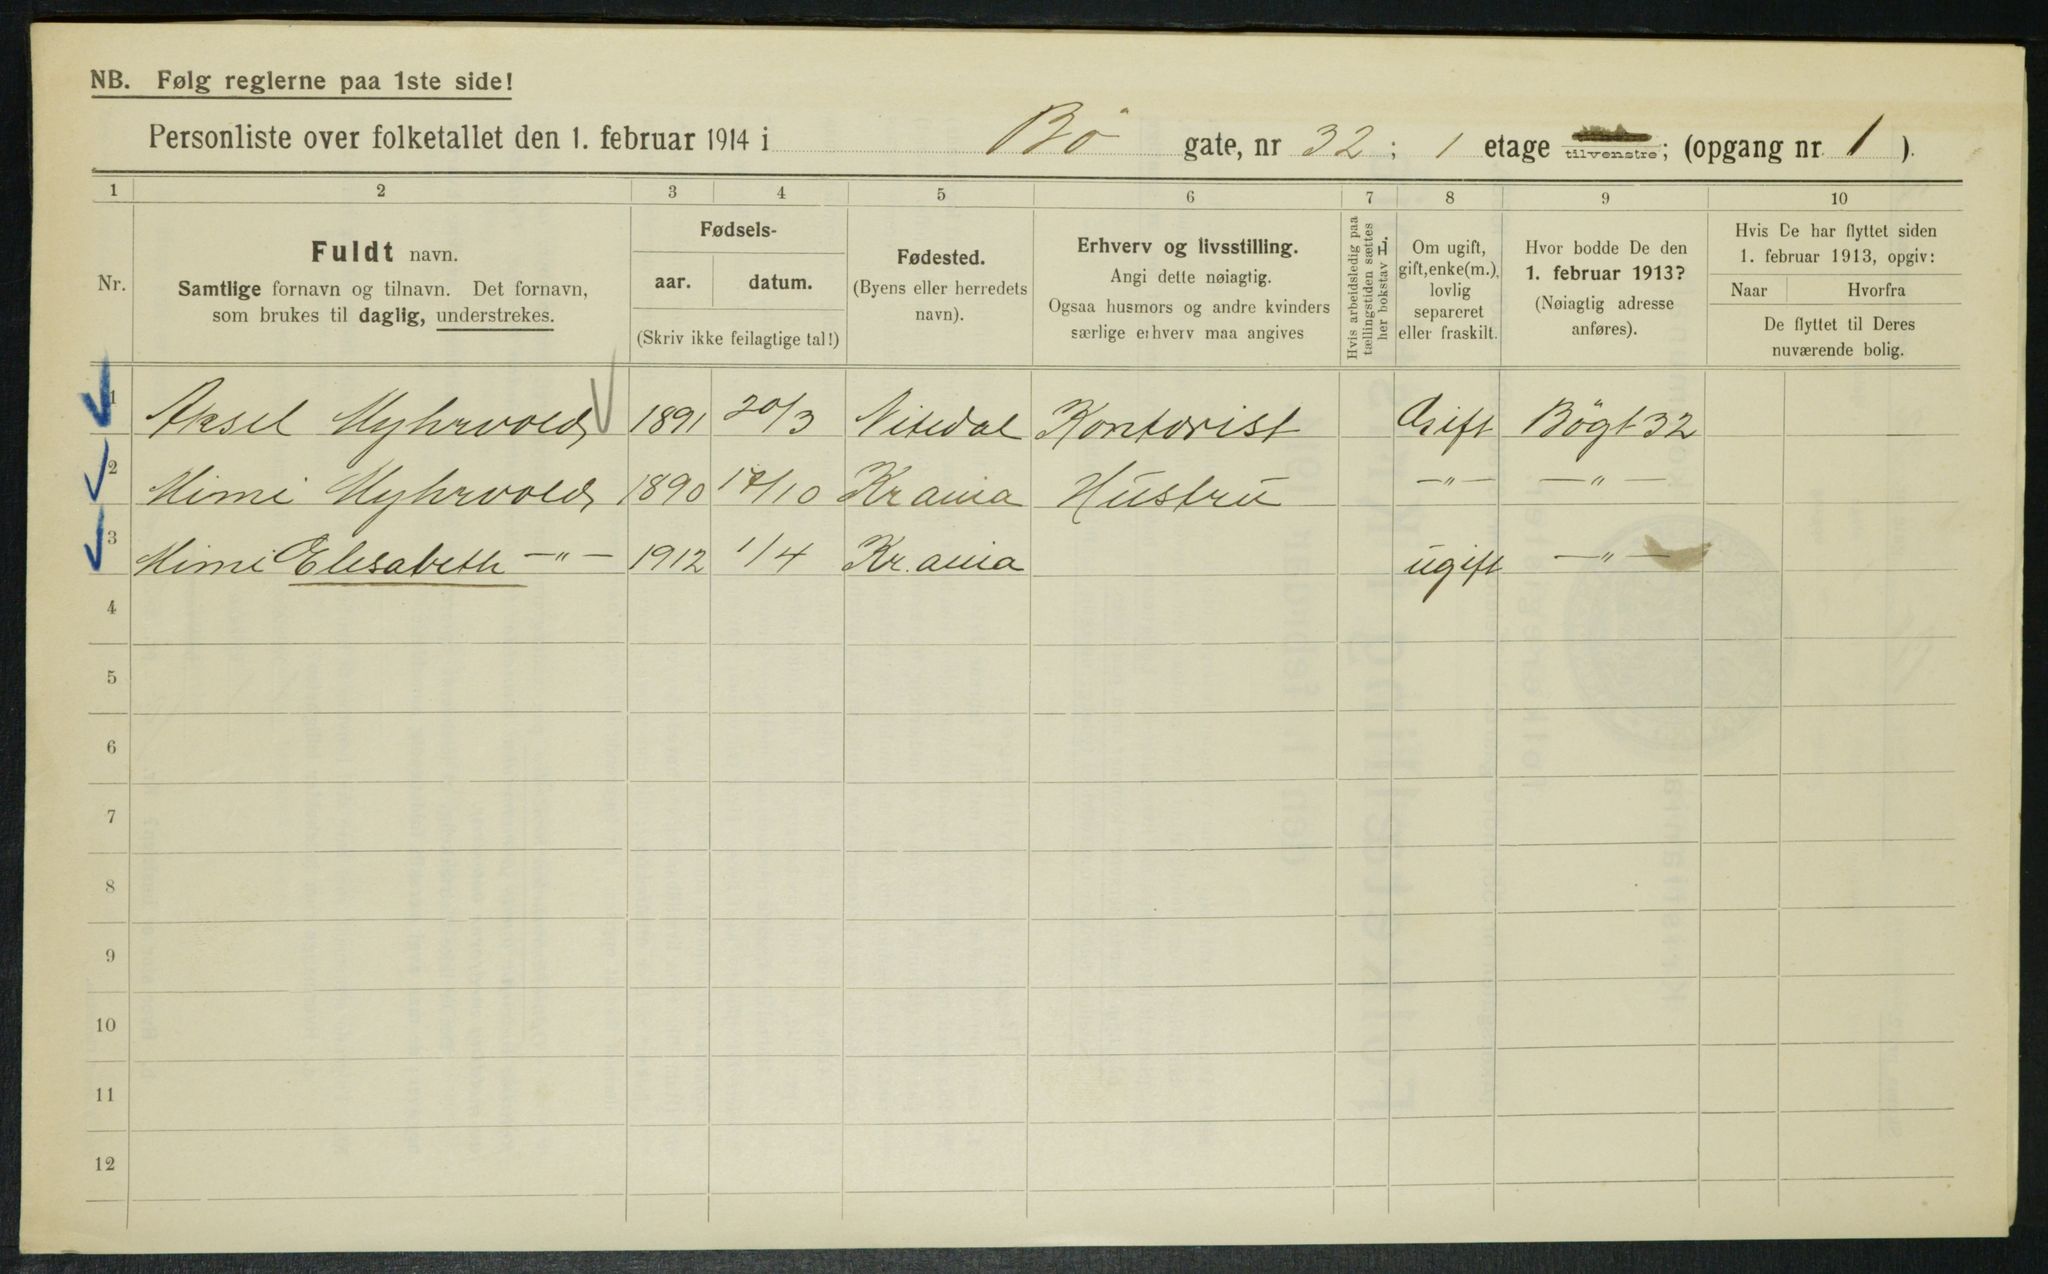 NB. Følg reglerne paa 1ste side!
Personliste over folketallet den 1. februar 1914 i Bö gate, nr 32 ; 1 etage tilvenstre; (opgang nr. 1 ).
1 2 3 4 5 6 7 8 9 10
Nr.
Fuldt navn.
Samtlige fornavn og tilnavn. Det fornavn,
som brukes til daglig, understrekes.
Fødsels-
aar. datum.
(Skriv ikke feilagtige tal!)
Fødested.
(Byens eller herredets
navn).
Erhverv og livsstilling.
Angi dette nøiagtig.
Ogsaa husmors og andre kvinders
særlige erhverv maa angives
Hvis arbeidsledig paa
tællingstiden sættes
her bokstav L.
Om ugift,
gift, enke(m.),
lovlig
separeret
eller fraskilt.
Hvor bodde De den
1. februar 1913?
(Nøiagtig adresse
anføres).
Hvis De har flyttet siden
1. februar 1913, opgiv:
Naar Hvorfra
De flyttet til Deres
nuværende bolig.
1 Aksel Myhrvold 1891 20/3 Nitedal Kontorist Gift Bögt 32
2 Mimi Myhrvold 1890 17/10 Kr.ania Hustru —"— —"—
3 Mimi Elisabeth —"— 1912 1/4 Kr.ania ugift —"—
4
5
6
7
8
9
10
11
12